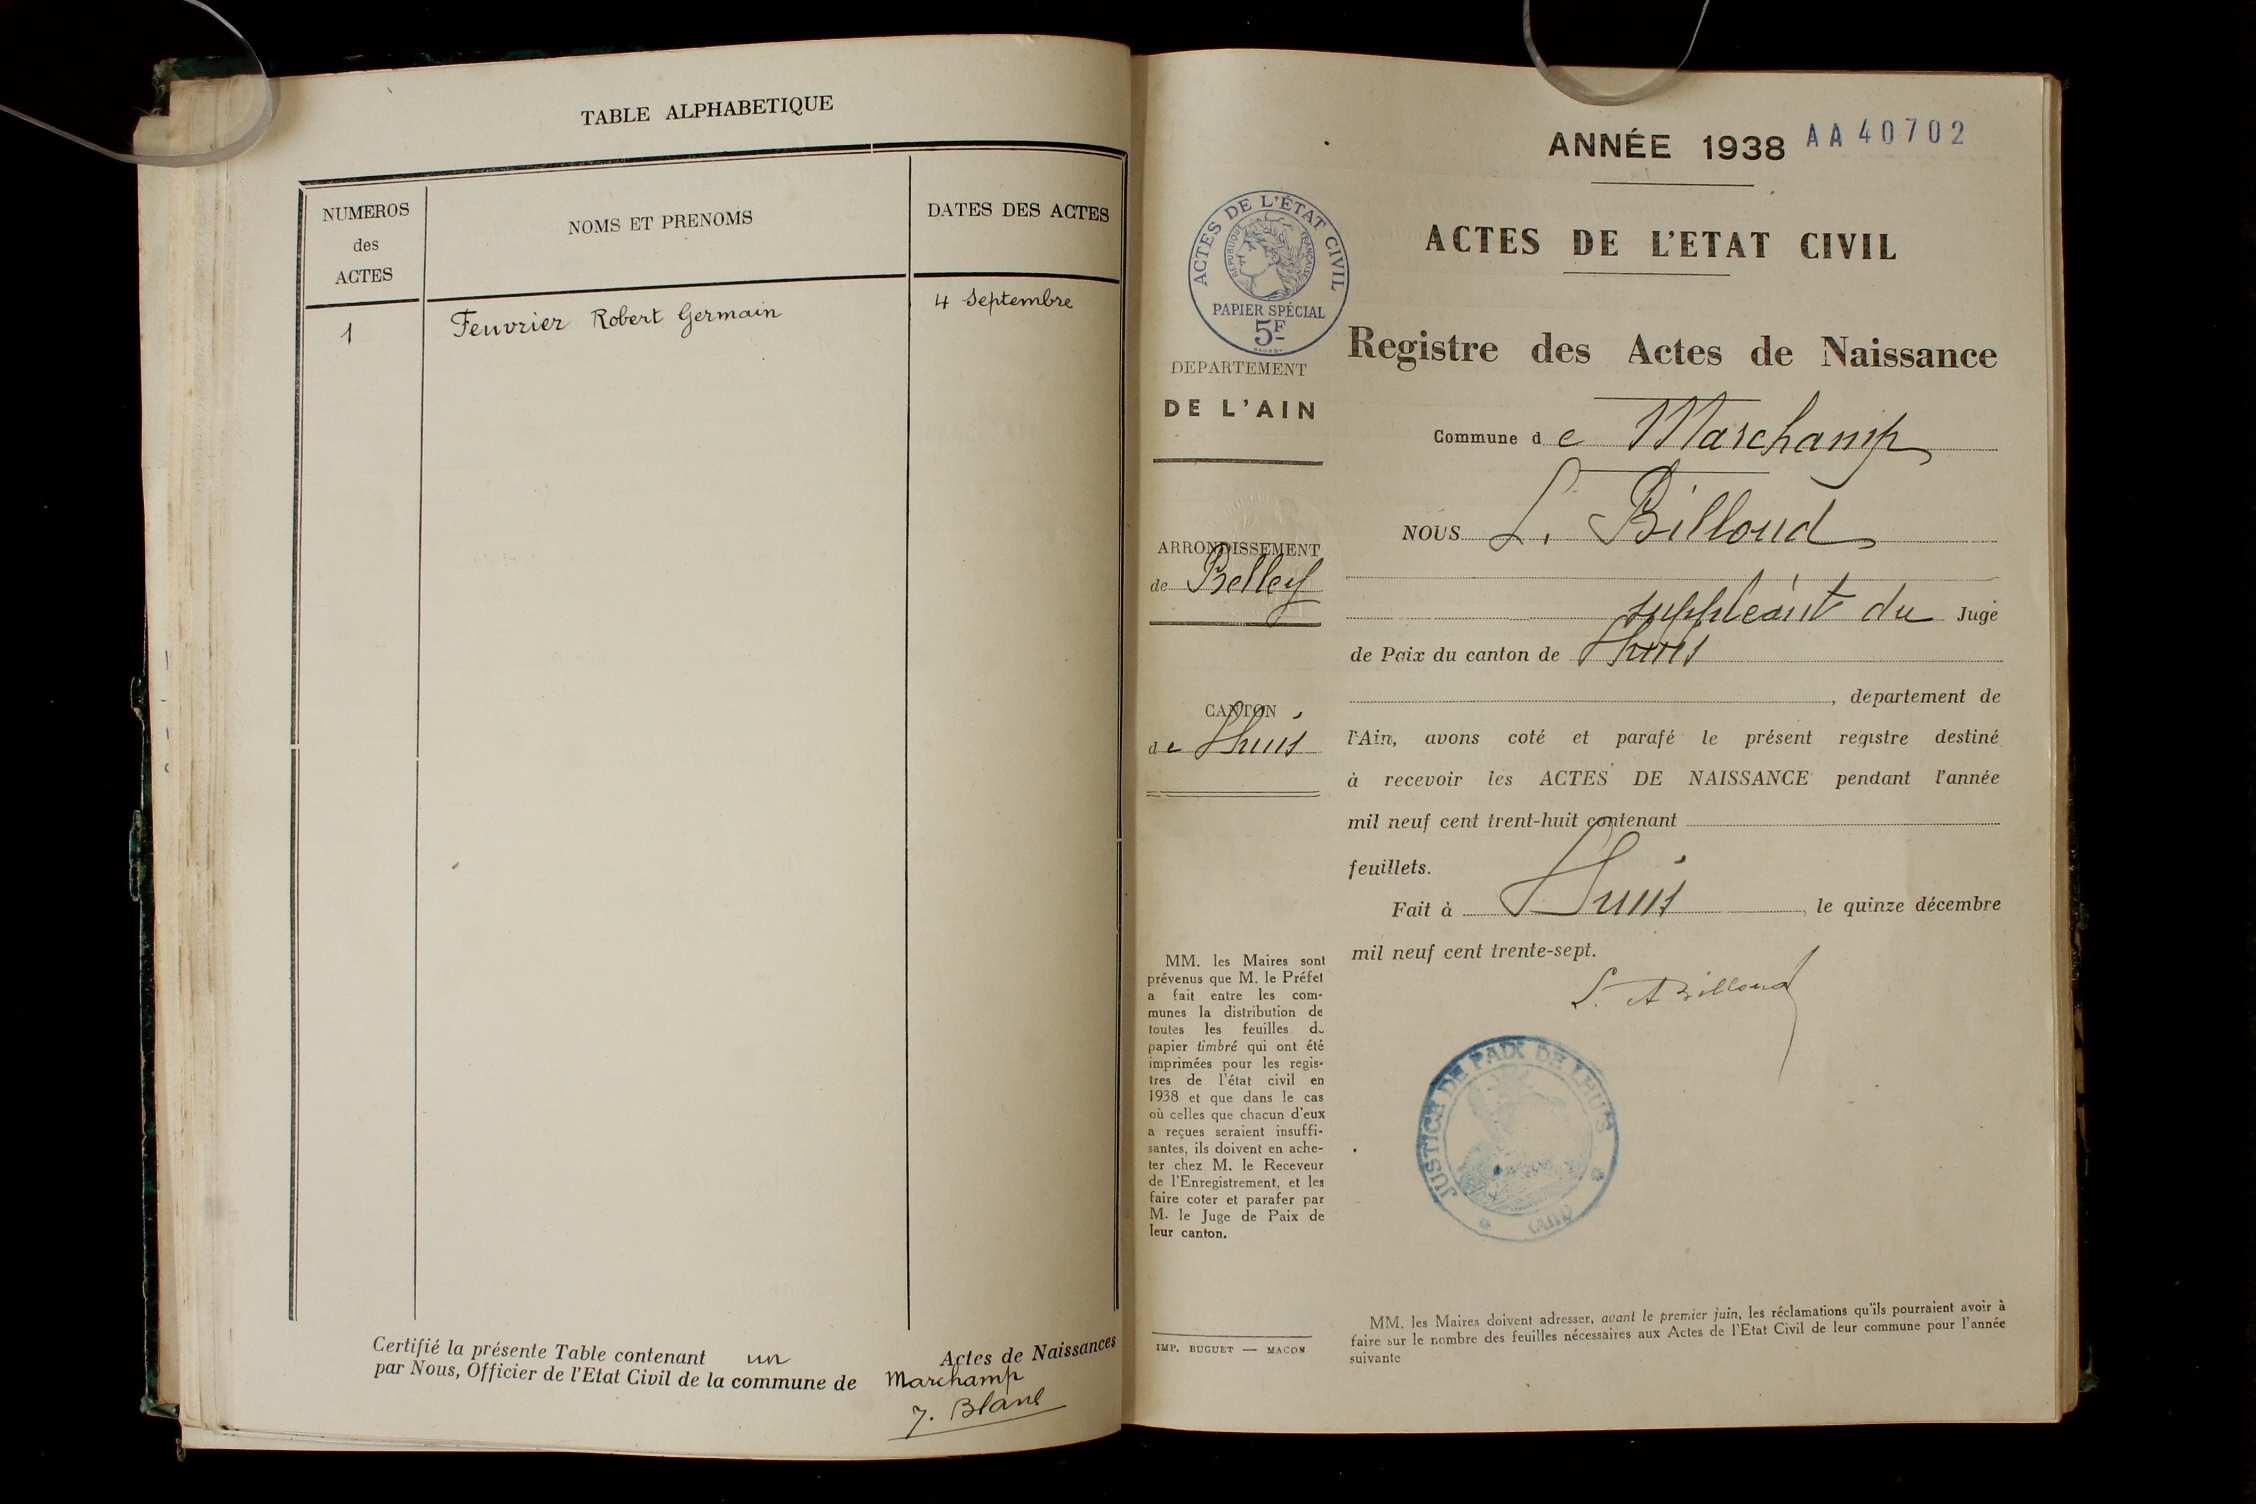 TABLE ALPHABETIQUE
NUMEROS
des
ACTES
NOMS ET PRENOMS
DATES DES ACTES
1
Feuvrier Robert Germain
4 Septembre
Certifié la présente Table contenant un Actes de Naissances
par Nous, Officier de l'Etat Civil de la commune de Marchamp
J. Blanc
ANNÉE 1938
AA40702
ACTES DE L'ETAT CIVIL
ACTES DE L'ÉTAT CIVIL
RÉPUBLIQUE FRANÇAISE
PAPIER SPÉCIAL
5F
Registre des Actes de Naissance
DEPARTEMENT
DE L'AIN
Commune de Marchamp
ARRONDISSEMENT
de Belley
CANTON
de Lhuis
NOUS L. Billoud
suppléant du Juge
de Paix du canton de Lhuis
, departement de
l'Ain, avons coté et parafé le présent registre destiné
à recevoir les ACTES DE NAISSANCE pendant l'année
mil neuf cent trent-huit contenant
feuillets.
Fait à Lhuis, le quinze décembre
mil neuf cent trente-sept.
L. Billoud
JUSTICE DE PAIX DE LHUIS
(AIN)
MM. les Maires sont
prévenus que M. le Préfet
a fait entre les com-
munes la distribution de
toutes les feuilles de
papier timbré qui ont été
imprimées pour les regis-
tres de l'état civil en
1938 et que dans le cas
où celles que chacun d'eux
a reçues seraient insuffi-
santes, ils doivent en ache-
ter chez M. le Receveur
de l'Enregistrement, et les
faire coter et parafer par
M. le Juge de Paix de
leur canton.
IMP. BUGUET — MACON
MM. les Maires doivent adresser, avant le premier juin, les réclamations qu'ils pourraient avoir à
faire sur le nombre des feuilles nécessaires aux Actes de l'Etat Civil de leur commune pour l'année
suivante